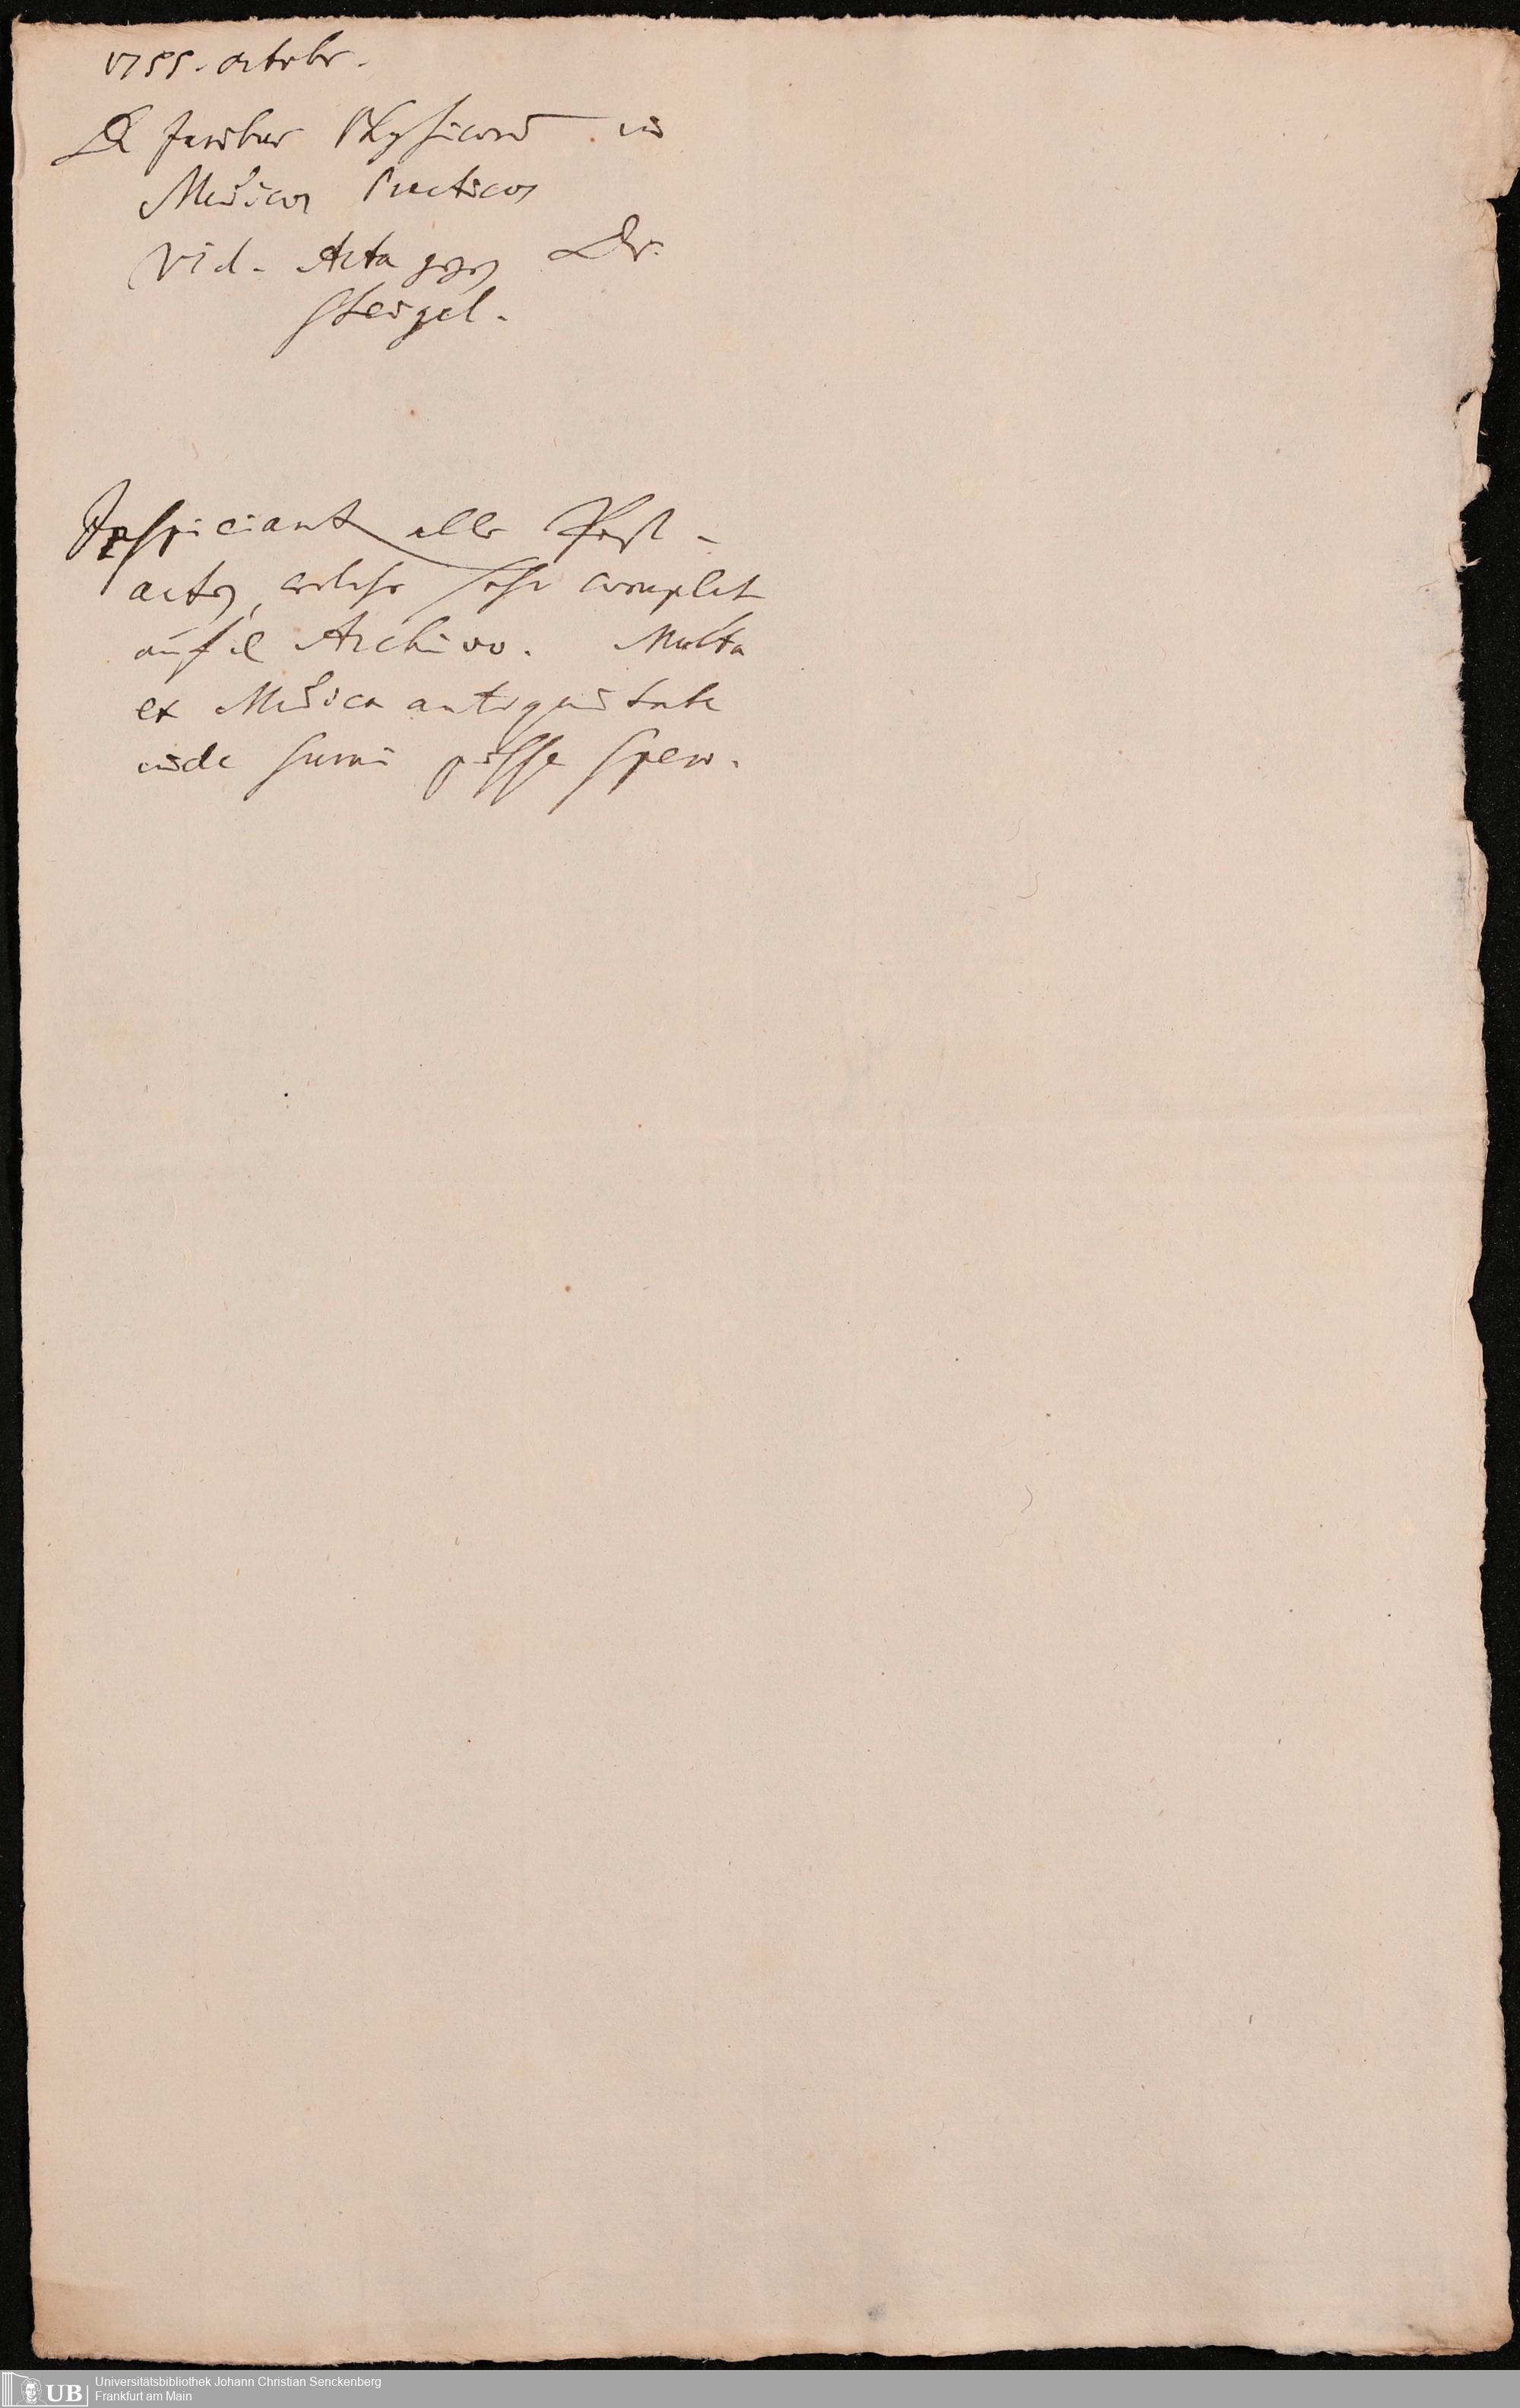 1755. octobr.
De Juribus Physicorum in
Medicos Practicos
vid. Acta gegen Dr.
Steigel.
Inspiciant alle Pest-
acten, welche sehr complet
auf de Archivo. Multa
ex Medica antiquitate
inde sumi posse spero.
Universitätsbibliothek Johann Christian Senckenberg
Frankfurt am Main
UB